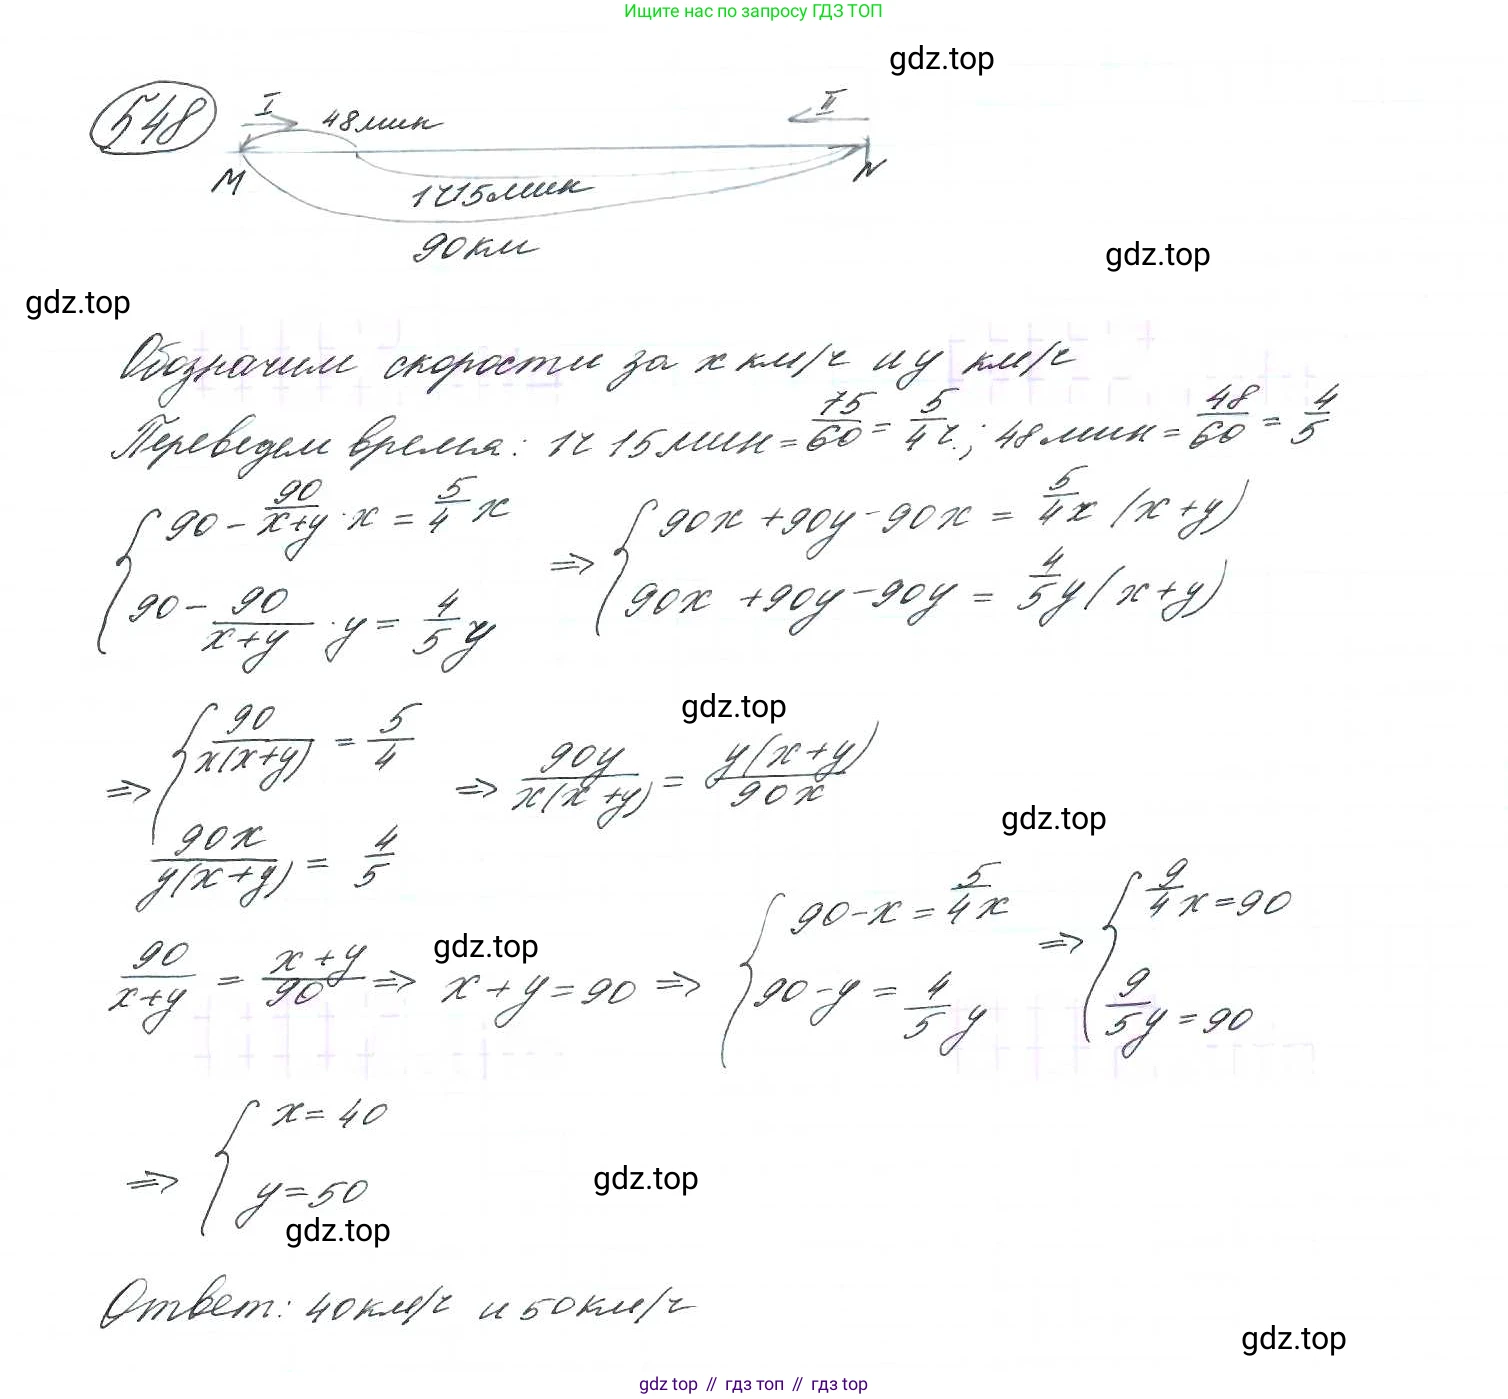 Ищите нас по запросу ГДЗ ТОП
gdz.top
548
I 48мин II
M N
1ч15мин
90км
gdz.top
gdz.top
Обозначим скорости за x км/ч и y км/ч
Переведем время: 1ч 15мин = 75/60 = 5/4 ч.; 48мин = 48/60 = 4/5
{ 90 - 90/(x+y) · x = 5/4 x ⇒ { 90x + 90y - 90x = 5/4 x (x+y)
90 - 90/(x+y) · y = 4/5 y 90x + 90y - 90y = 4/5 y (x+y)
gdz.top
⇒ { 90/(x(x+y)) = 5/4 ⇒ 90y/(x(x+y)) = y(x+y)/(90x)
90x/(y(x+y)) = 4/5
gdz.top
gdz.top
90/(x+y) = (x+y)/90 ⇒ x + y = 90 ⇒ { 90 - x = 5/4 x ⇒ { 9/4 x = 90
90 - y = 4/5 y 9/5 y = 90
⇒ { x = 40
y = 50
gdz.top
gdz.top
Ответ: 40км/ч и 50км/ч
gdz.top
gdz top // гдз топ // гдз top